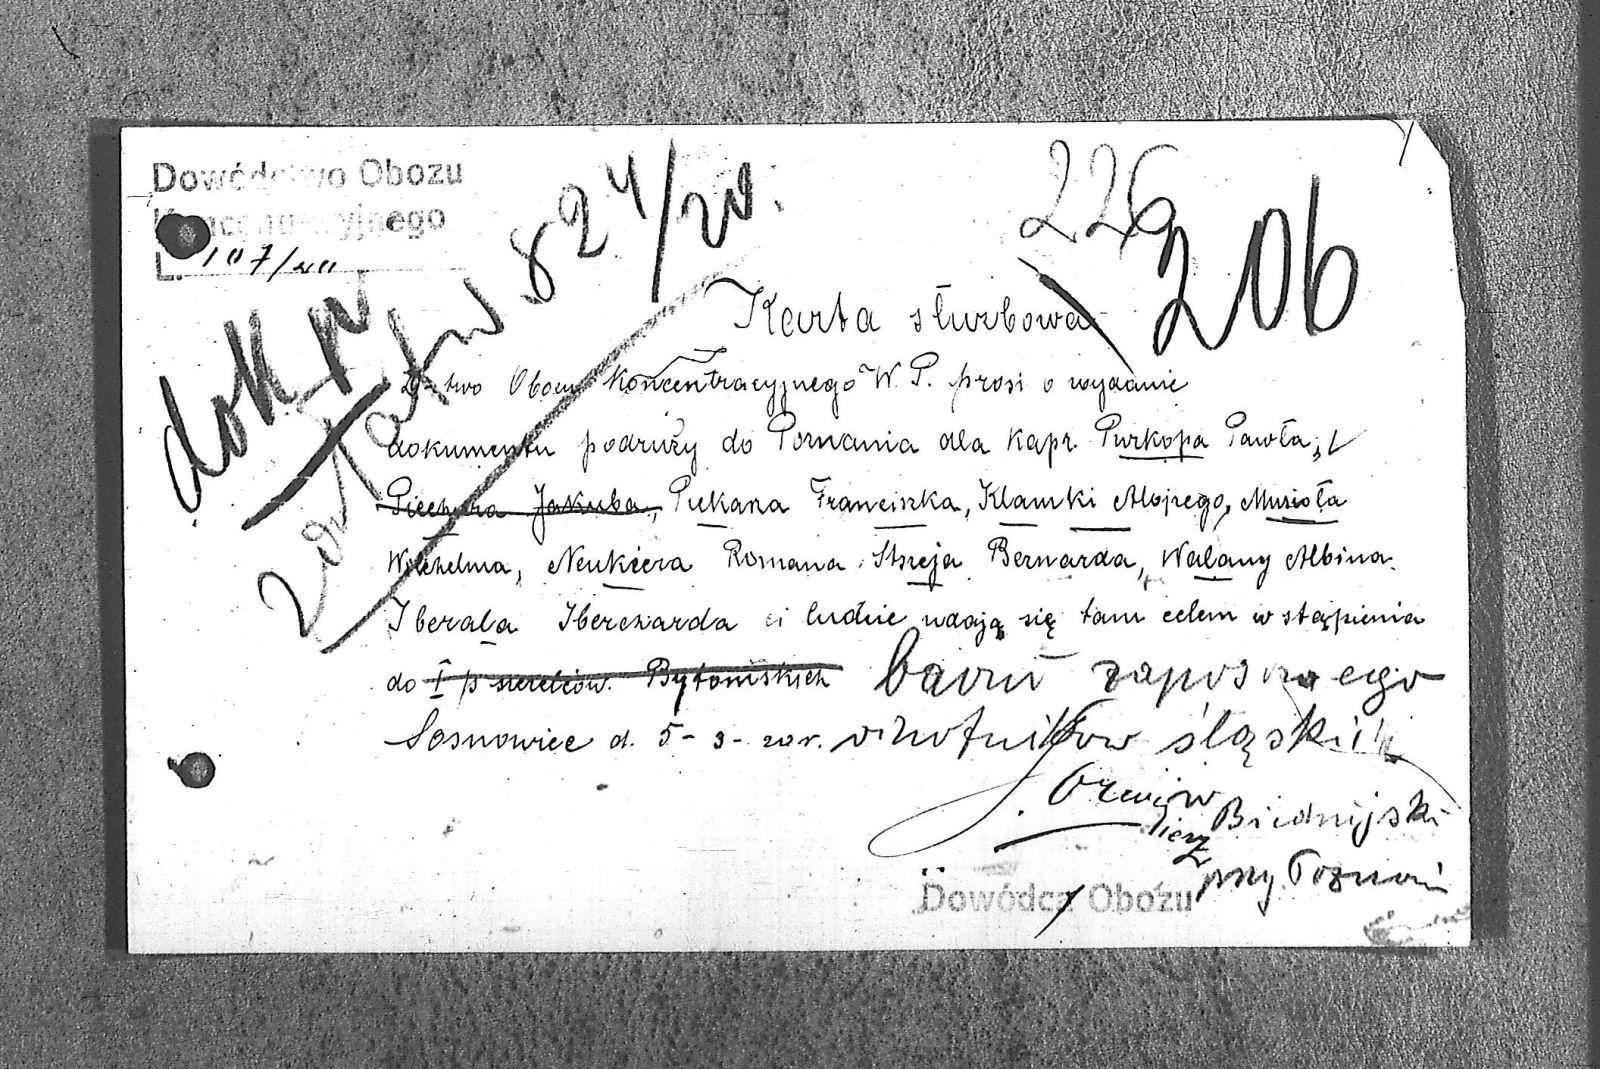 Dowództwo Obozu
Koncentracyjnego
L. 107/20
226
206
dok
824/20.
Karta służbowa
D-two Obozu Koncentracyjnego W. P. prosi o wydanie
dokumentu podruży do Poznania dla kapr. Purkopa Pawła,
Piechura Jakuba, Piekana Franciszka, Klamki Alojzego, Musioła
Wilchelma, Neukiera Romana Strzeja Bernarda, Walany Albina.
Iberala Iberharda ci ludzie udają się tam celem wstąpienia
do I p strzelców Bytomskich baonu zapasowego
Sosnowiec d. 5-3-20 r. ochotników śląskich
Biedrujski
przy Poznań
Dowódca Obozu